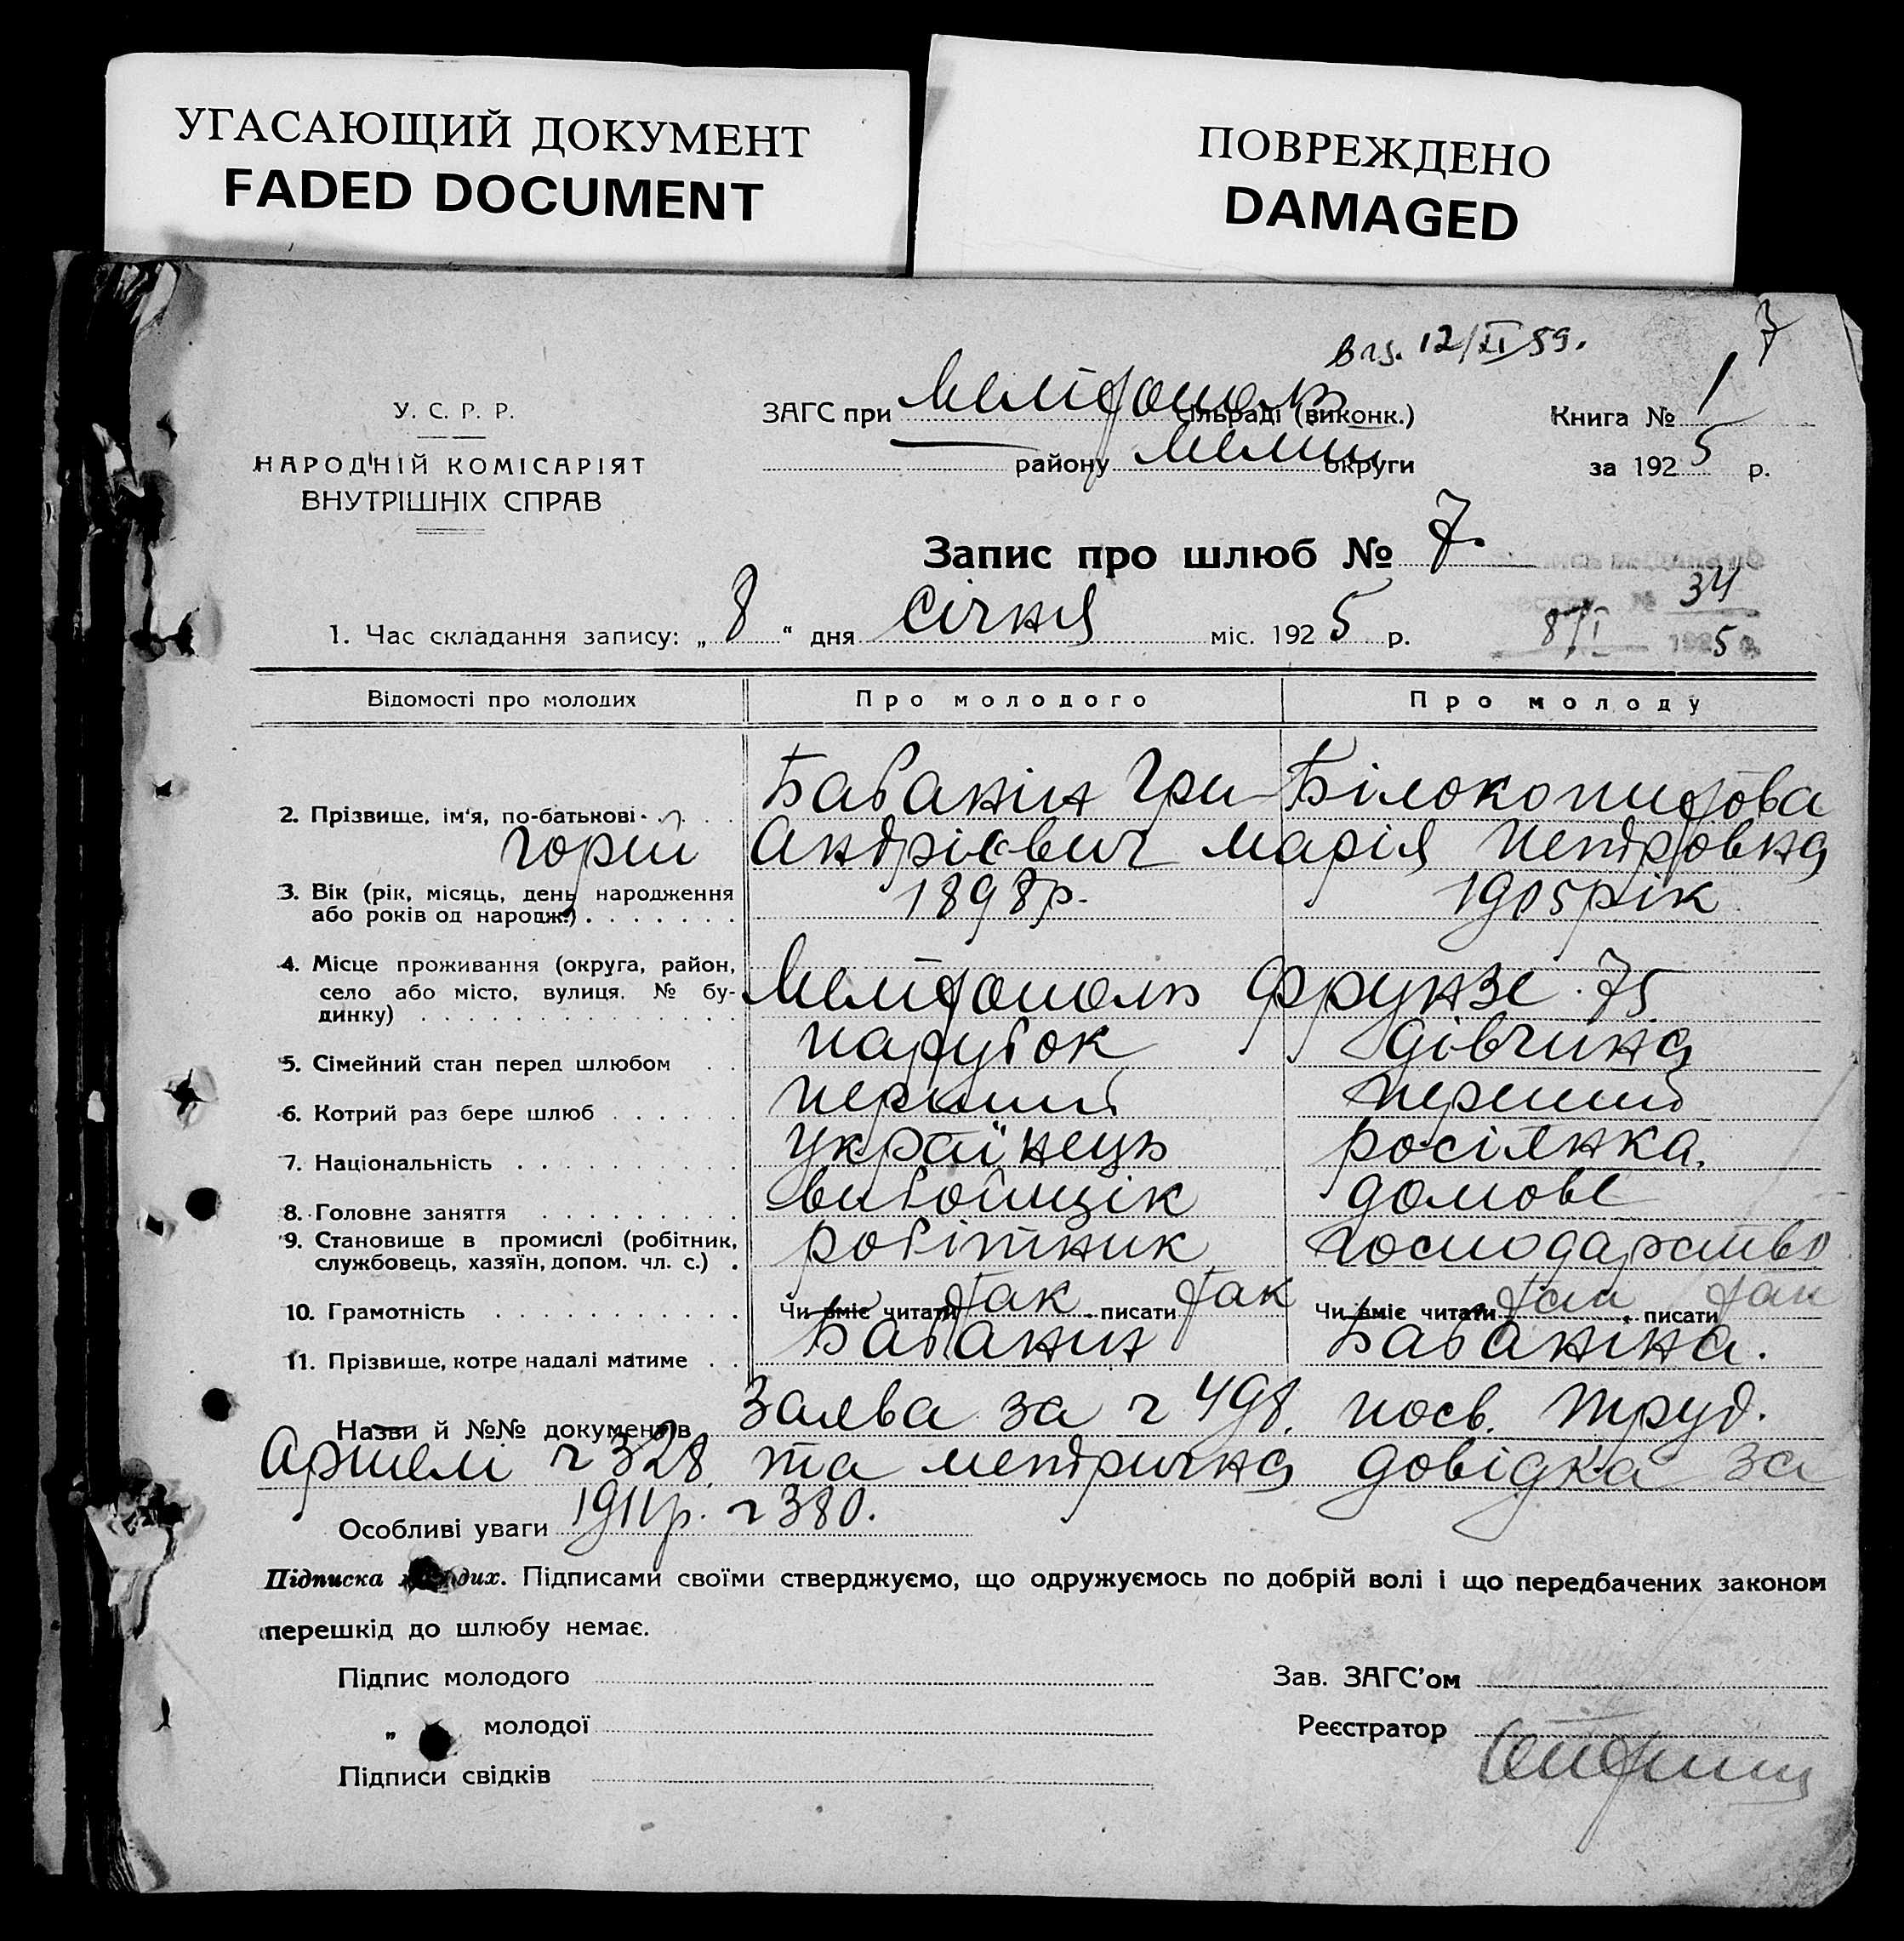 УГАСАЮЩИЙ ДОКУМЕНТ
FADED DOCUMENT
ПОВРЕЖДЕНО
DAMAGED
12/XI 59.
7
У. С. Р. Р.
НАРОДНІЙ КОМІСАРІЯТ
ВНУТРІШНІХ СПРАВ
ЗАГС при Мелітополь сільраді (виконк.)
району Меліт округи
Книга № 1
за 1925 р.
Запис про шлюб № 7.
34
8/I 1925
1. Час складання запису: „8“ дня січня міс. 1925 р.
Відомості про молодих Про молодого Про молоду
2. Прізвище, ім'я, по-батькові Бабанін Гри- Білокопитова
горій Андрієвич Марія Петровна
3. Вік (рік, місяць, день народження 1898р. 1905 рік
або років од народж.)
4. Місце проживання (округа, район,
село або місто, вулиця. № бу- Мелітополь Фрунзе 75
динку)
5. Сімейний стан перед шлюбом парубок дівчина
6. Котрий раз бере шлюб перший перший
7. Національність українець росіянка.
8. Головне заняття вибойщік домове
9. Становище в промислі (робітник, робітник господарство
службовець, хазяїн, допом. чл. с.)
10. Грамотність Чи вміє читати так писати так Чи вміє читати так, писати так
11. Прізвище, котре надалі матиме Бабанин Бабаніна.
Назви й №№ документів Заява за ч 498. посв. труд.
Артелі ч 328, та метрична довідка за
Особливі уваги 1911р. ч 380.
Підписка молодих. Підписами своїми стверджуємо, що одружуємось по добрій волі і що передбачених законом
перешкід до шлюбу немає.
Підпис молодого Зав. ЗАГС'ом
„ молодої Реєстратор
Підписи свідків